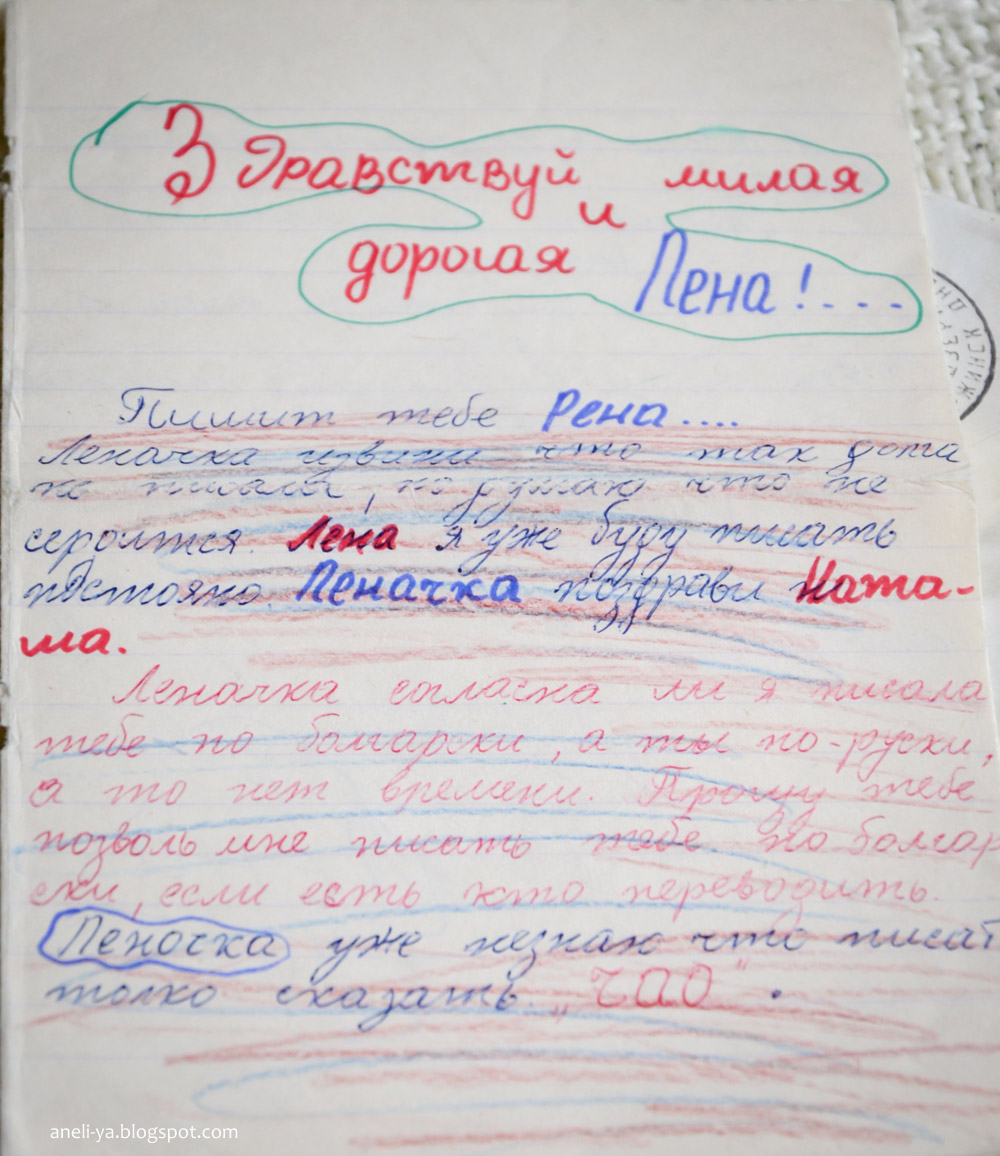 Здравствуй милая
и
дорогая Лена!....
Пишит тебе Рена....
Леначка извини что так дога
не писала, но думаю что не
сердится. Лена я уже буду писать
постояно. Леначка поздравы Ната-
ша.
Леначка согласна ли я писала
тебе по болгарски, а ты по-руски,
а то нет времени. Прошу тебе
позволь мне писать тебе по болгар
ски, если есть кто переводить.
Леночка уже незнаю что писат
толко сказать „ЧАО".
aneli-ya.blogspot.com